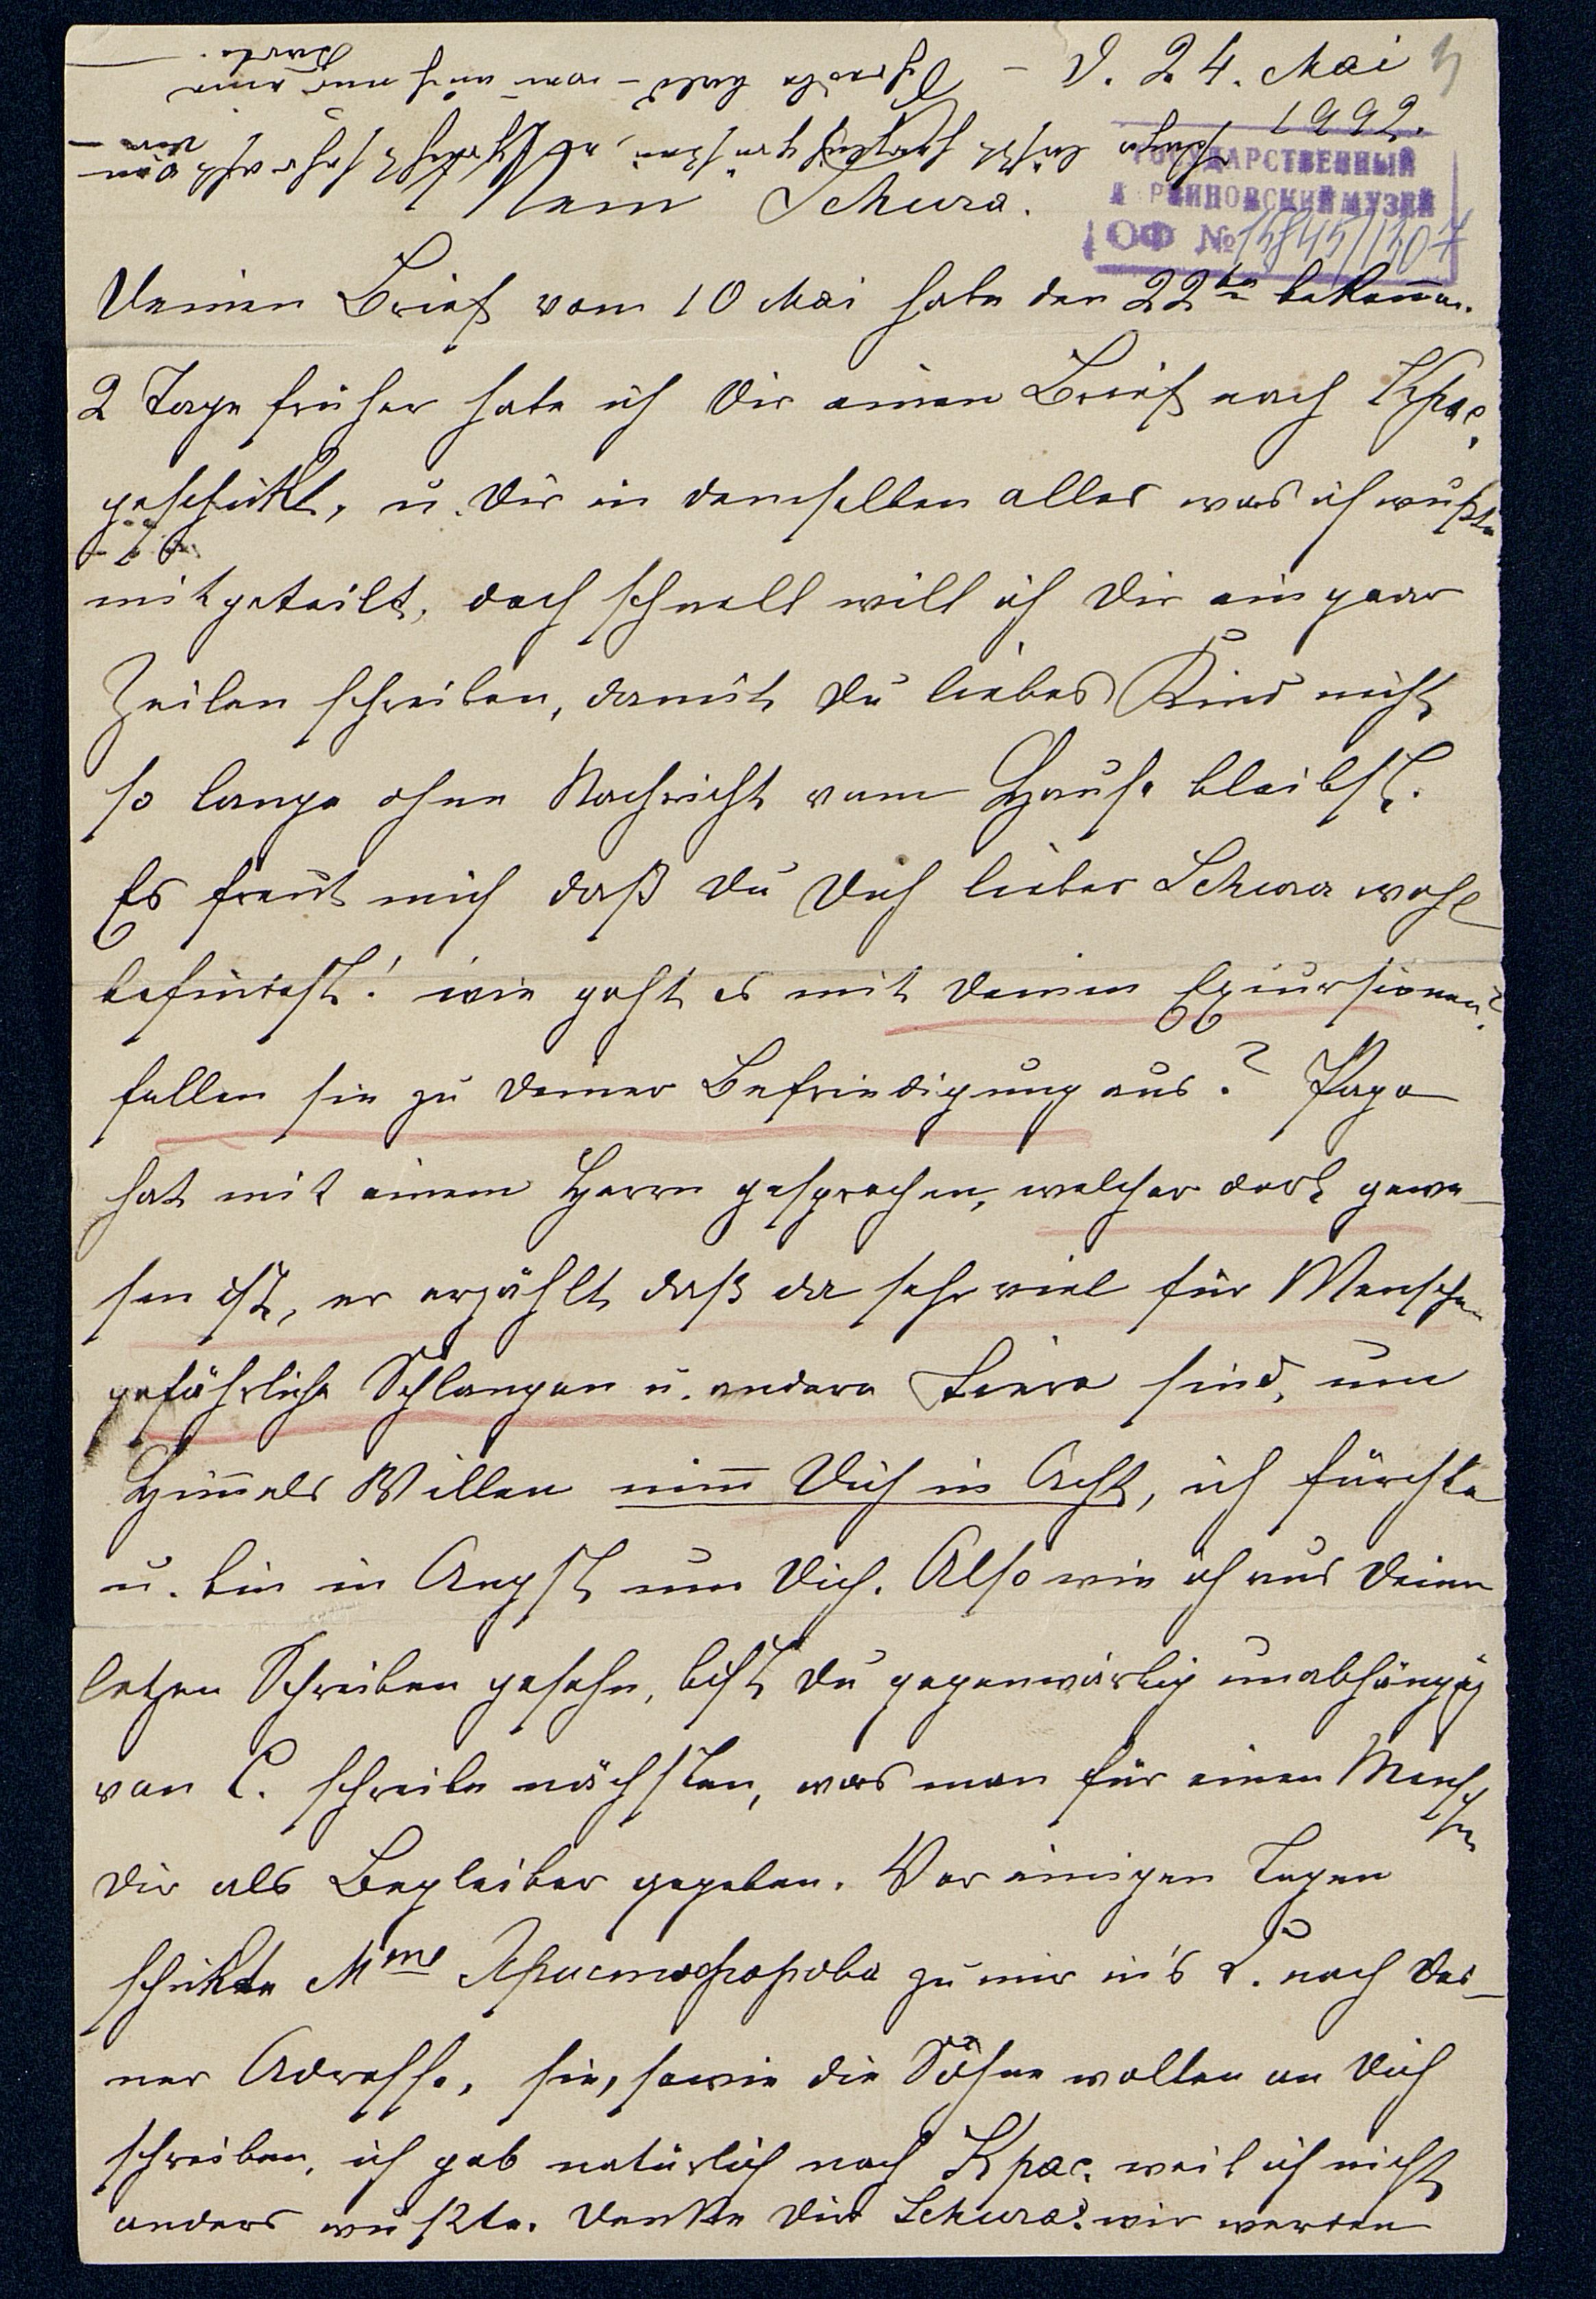 D. 24. Mai
1992.
ГОСУДАРСТВЕННЫЙ
ДАРВИНОВСКИЙ МУЗЕЙ
ОФ № 15845/1307
Mein Schura.
Deinen Brief vom 10 Mai habe den 22ten bekomm̅en.
2 Tage früher habe ich Dir einen Brief nach Крас.
geschickt, u. Dir in demselben alles was ich wußte
mitgeteilt, doch schnell will ich Dir ein paar
Zeilen schreiben, damit Du liebes Kind nicht
so lange ohne Nachricht vom Hause bleibst.
Es freut mich daß Du Dich lieber Schura wohl
befindest! wie geht es mit Deinen Excursionen?
fallen sie zu Deiner Befriedigung aus? Papa
hat mit einem Herrn gesprochen, welcher dort gewe-
sen ist, er erzählt daß da sehr viel für Menschen
gefährliche Schlangen u. andere Tiere sind, um
Him̅els Willen nim̅ Dich in Acht, ich fürchte
u. bin in Angst um Dich. Also wie ich aus Deinen
letzen Schreiben gesehn, bist Du gegenwärtig unabhängig
von C. schreibe nächsten, was man für einen Menschen
Dir als Begleiter gegeben. Vor einigen Tagen
schickte Mme Христофорова zu mir in's Q. nach Dei-
ner Adresse, sie, sowie die Söhne wollen an Dich
schreiben, ich gab natürlich nach Крас. weil ich nicht
anders wußte. Denke Dir Schura! wir werden
Schreibe bald – wenn auch nur eine
Karte.
Papa läßt herzlich grüßen